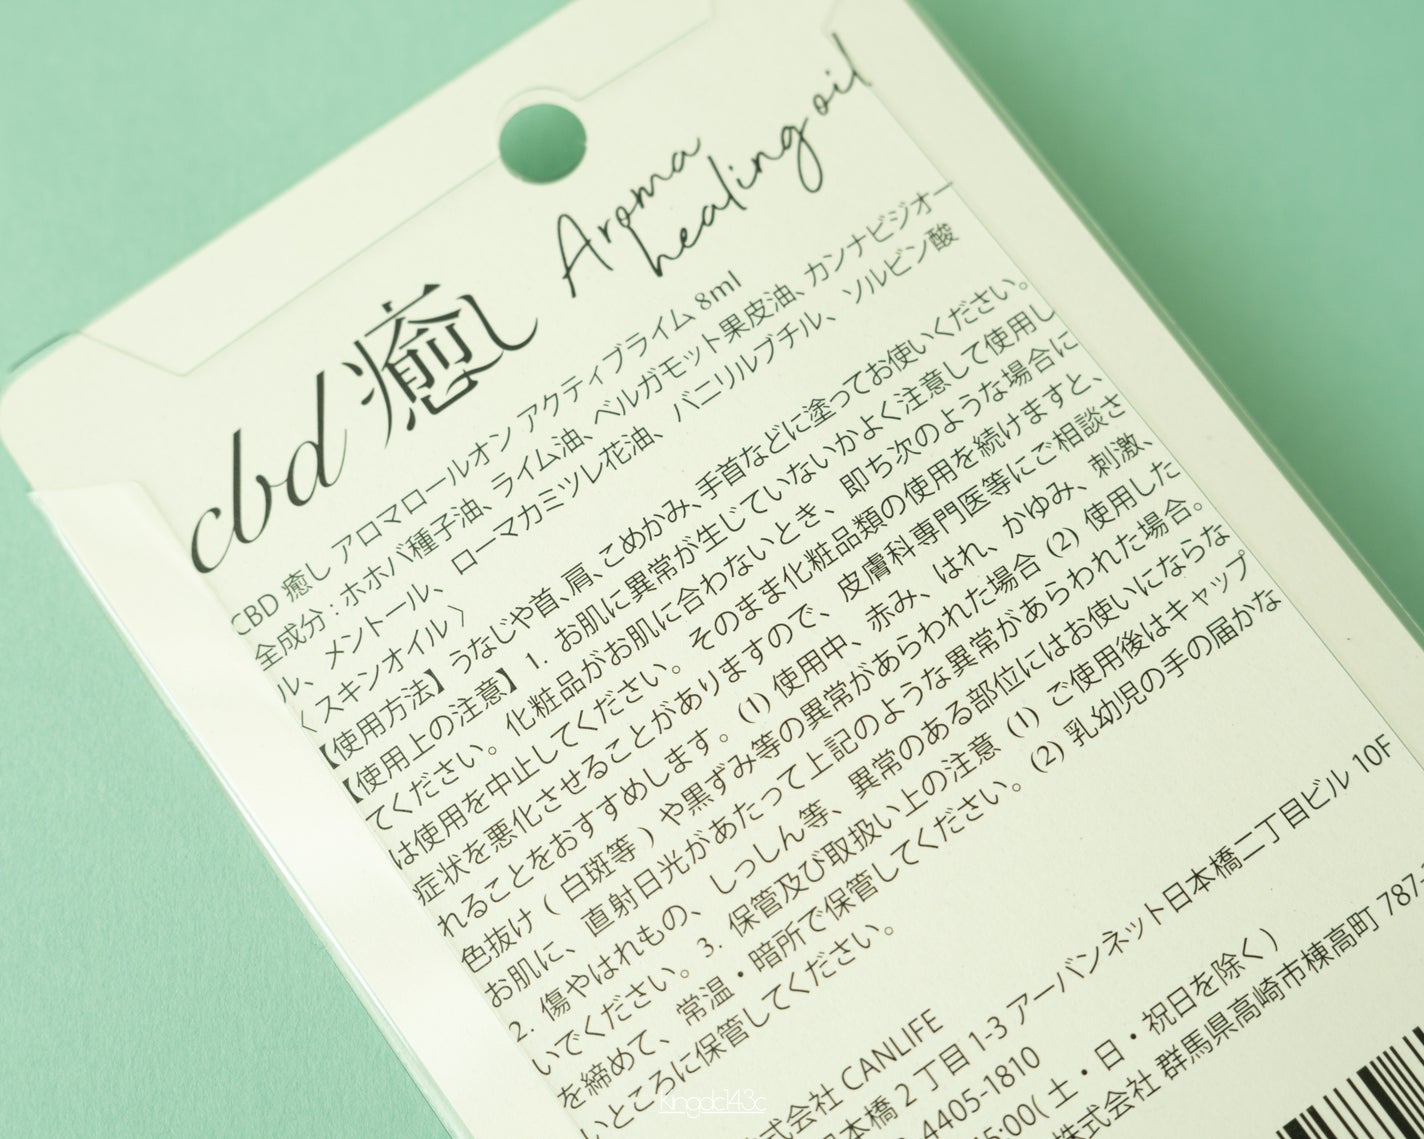 Aroma
healing oil
cbd 癒し
CBD 癒し アロマロールオン アクティブライム 8ml
全成分 : ホホバ種子油、ライム油、ベルガモット果皮油、カンナビジオー
ル、メントール、ローマカミツレ花油、バニリルブチル、ソルビン酸
〈 スキンオイル 〉
【使用方法】うなじや首、肩、こめかみ、手首などに塗ってお使いください。
【使用上の注意】1. お肌に異常が生じていないかよく注意して使用し
てください。化粧品がお肌に合わないとき、即ち次のような場合に
は使用を中止してください。そのまま化粧品類の使用を続けますと、
症状を悪化させることがありますので、皮膚科専門医等にご相談さ
れることをおすすめします。(1) 使用中、赤み、はれ、かゆみ、刺激、
色抜け ( 白斑等 ) や黒ずみ等の異常があらわれた場合 (2) 使用した
お肌に、直射日光があたって上記のような異常があらわれた場合。
2. 傷やはれもの、しっしん等、異常のある部位にはお使いにならな
いでください。3. 保管及び取扱い上の注意 (1) ご使用後はキャップ
を締めて、常温・暗所で保管してください。(2) 乳幼児の手の届かな
いところに保管してください。
式会社 CANLIFE
本橋 2 丁目 1-3 アーバンネット日本橋二丁目ビル 10F
4405-1810
5:00( 土・日・祝日を除く )
株式会社 群馬県高崎市棟高町 787-
Kingdc143c